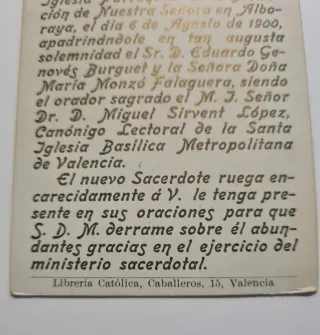 Iglesia
ción de Nuestra Señora en Albo-
raya, el día 6 de Agosto de 1900,
apadrinándole en tan augusta
solemnidad el Sr. D. Eduardo Ge-
novés Burguet y la Señora Doña
María Monzó Falaguera, siendo
el orador sagrado el M. I. Señor
Dr. D. Miguel Sirvent López,
Canónigo Lectoral de la Santa
Iglesia Basílica Metropolitana
de Valencia.
El nuevo Sacerdote ruega en-
carecidamente á V. le tenga pre-
sente en sus oraciones para que
S. D. M. derrame sobre él abun-
dantes gracias en el ejercicio del
ministerio sacerdotal.
Librería Católica, Caballeros, 15, Valencia